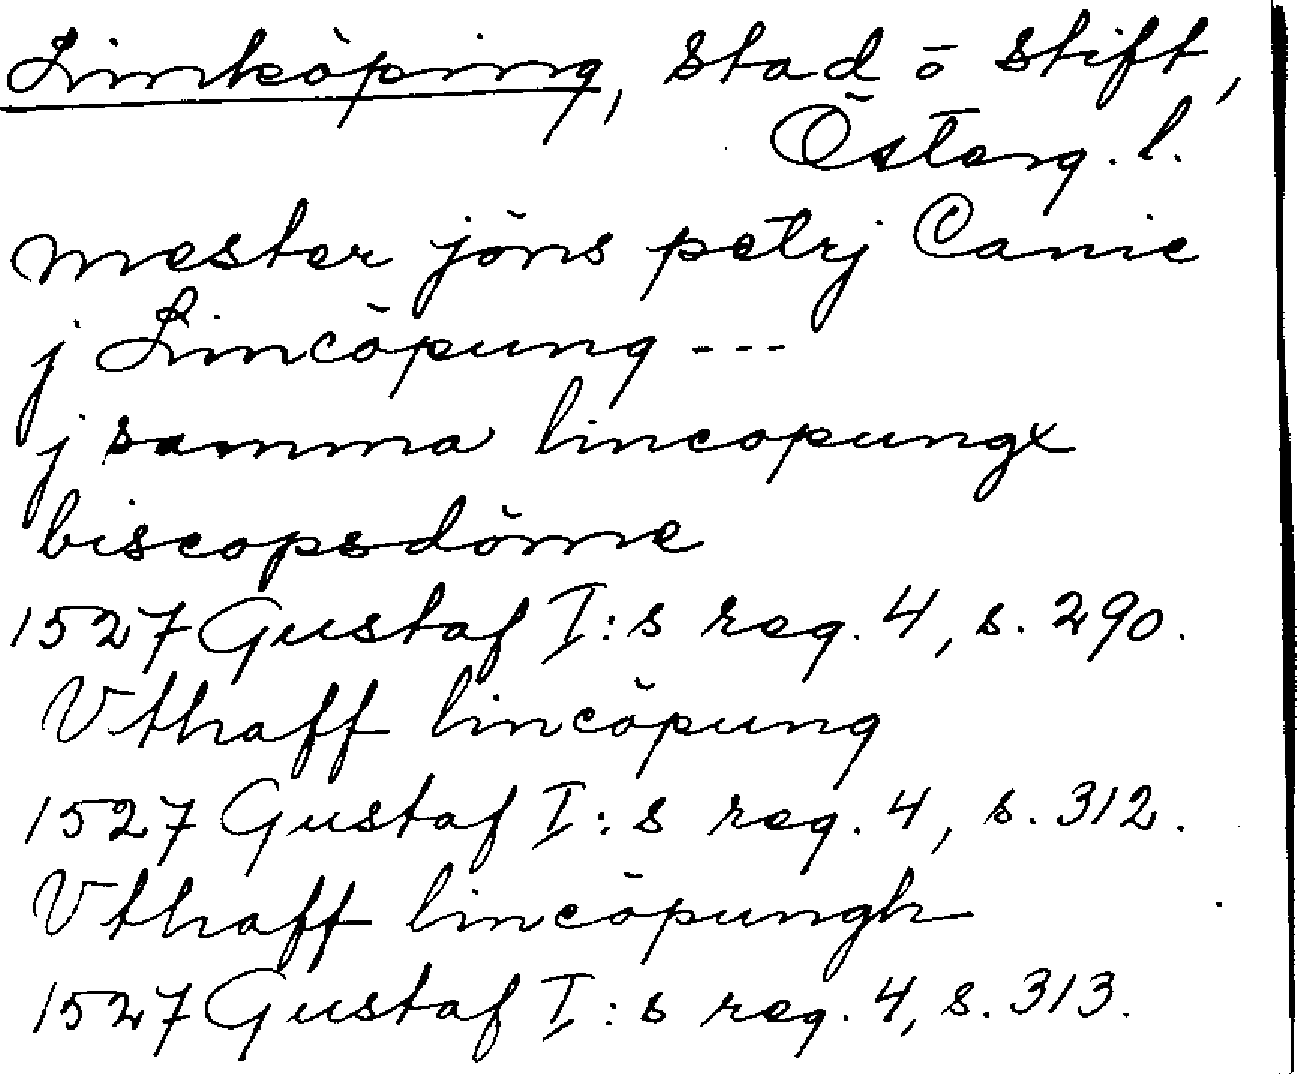 Linköping, stad ō stift,
Österg. l.
mester jöns petrj Canic
j Lincöpung ---
j samma lincopungx
biscopsdöme
1527 Gustaf I:s reg. 4, s. 290.
Vthaff lincöpung
1527 Gustaf I:s reg. 4, s. 312.
Vthaff lincöpungh
1527 Gustaf I:s reg. 4, s. 313.